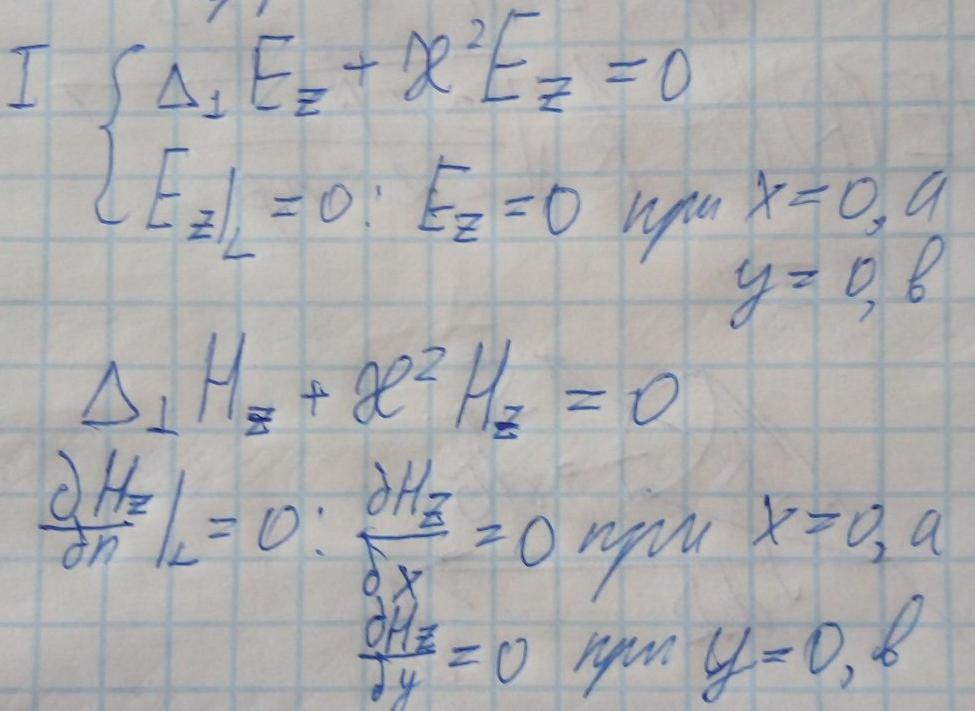 I { Δ⊥ E_z + ϰ² E_z = 0
E_z|_L = 0 : E_z = 0 при x = 0, a
y = 0, в
Δ⊥ H_z + ϰ² H_z = 0
∂H_z/∂n |_L = 0 : ∂H_z/∂x = 0 при x = 0, a
∂H_z/∂y = 0 при y = 0, в